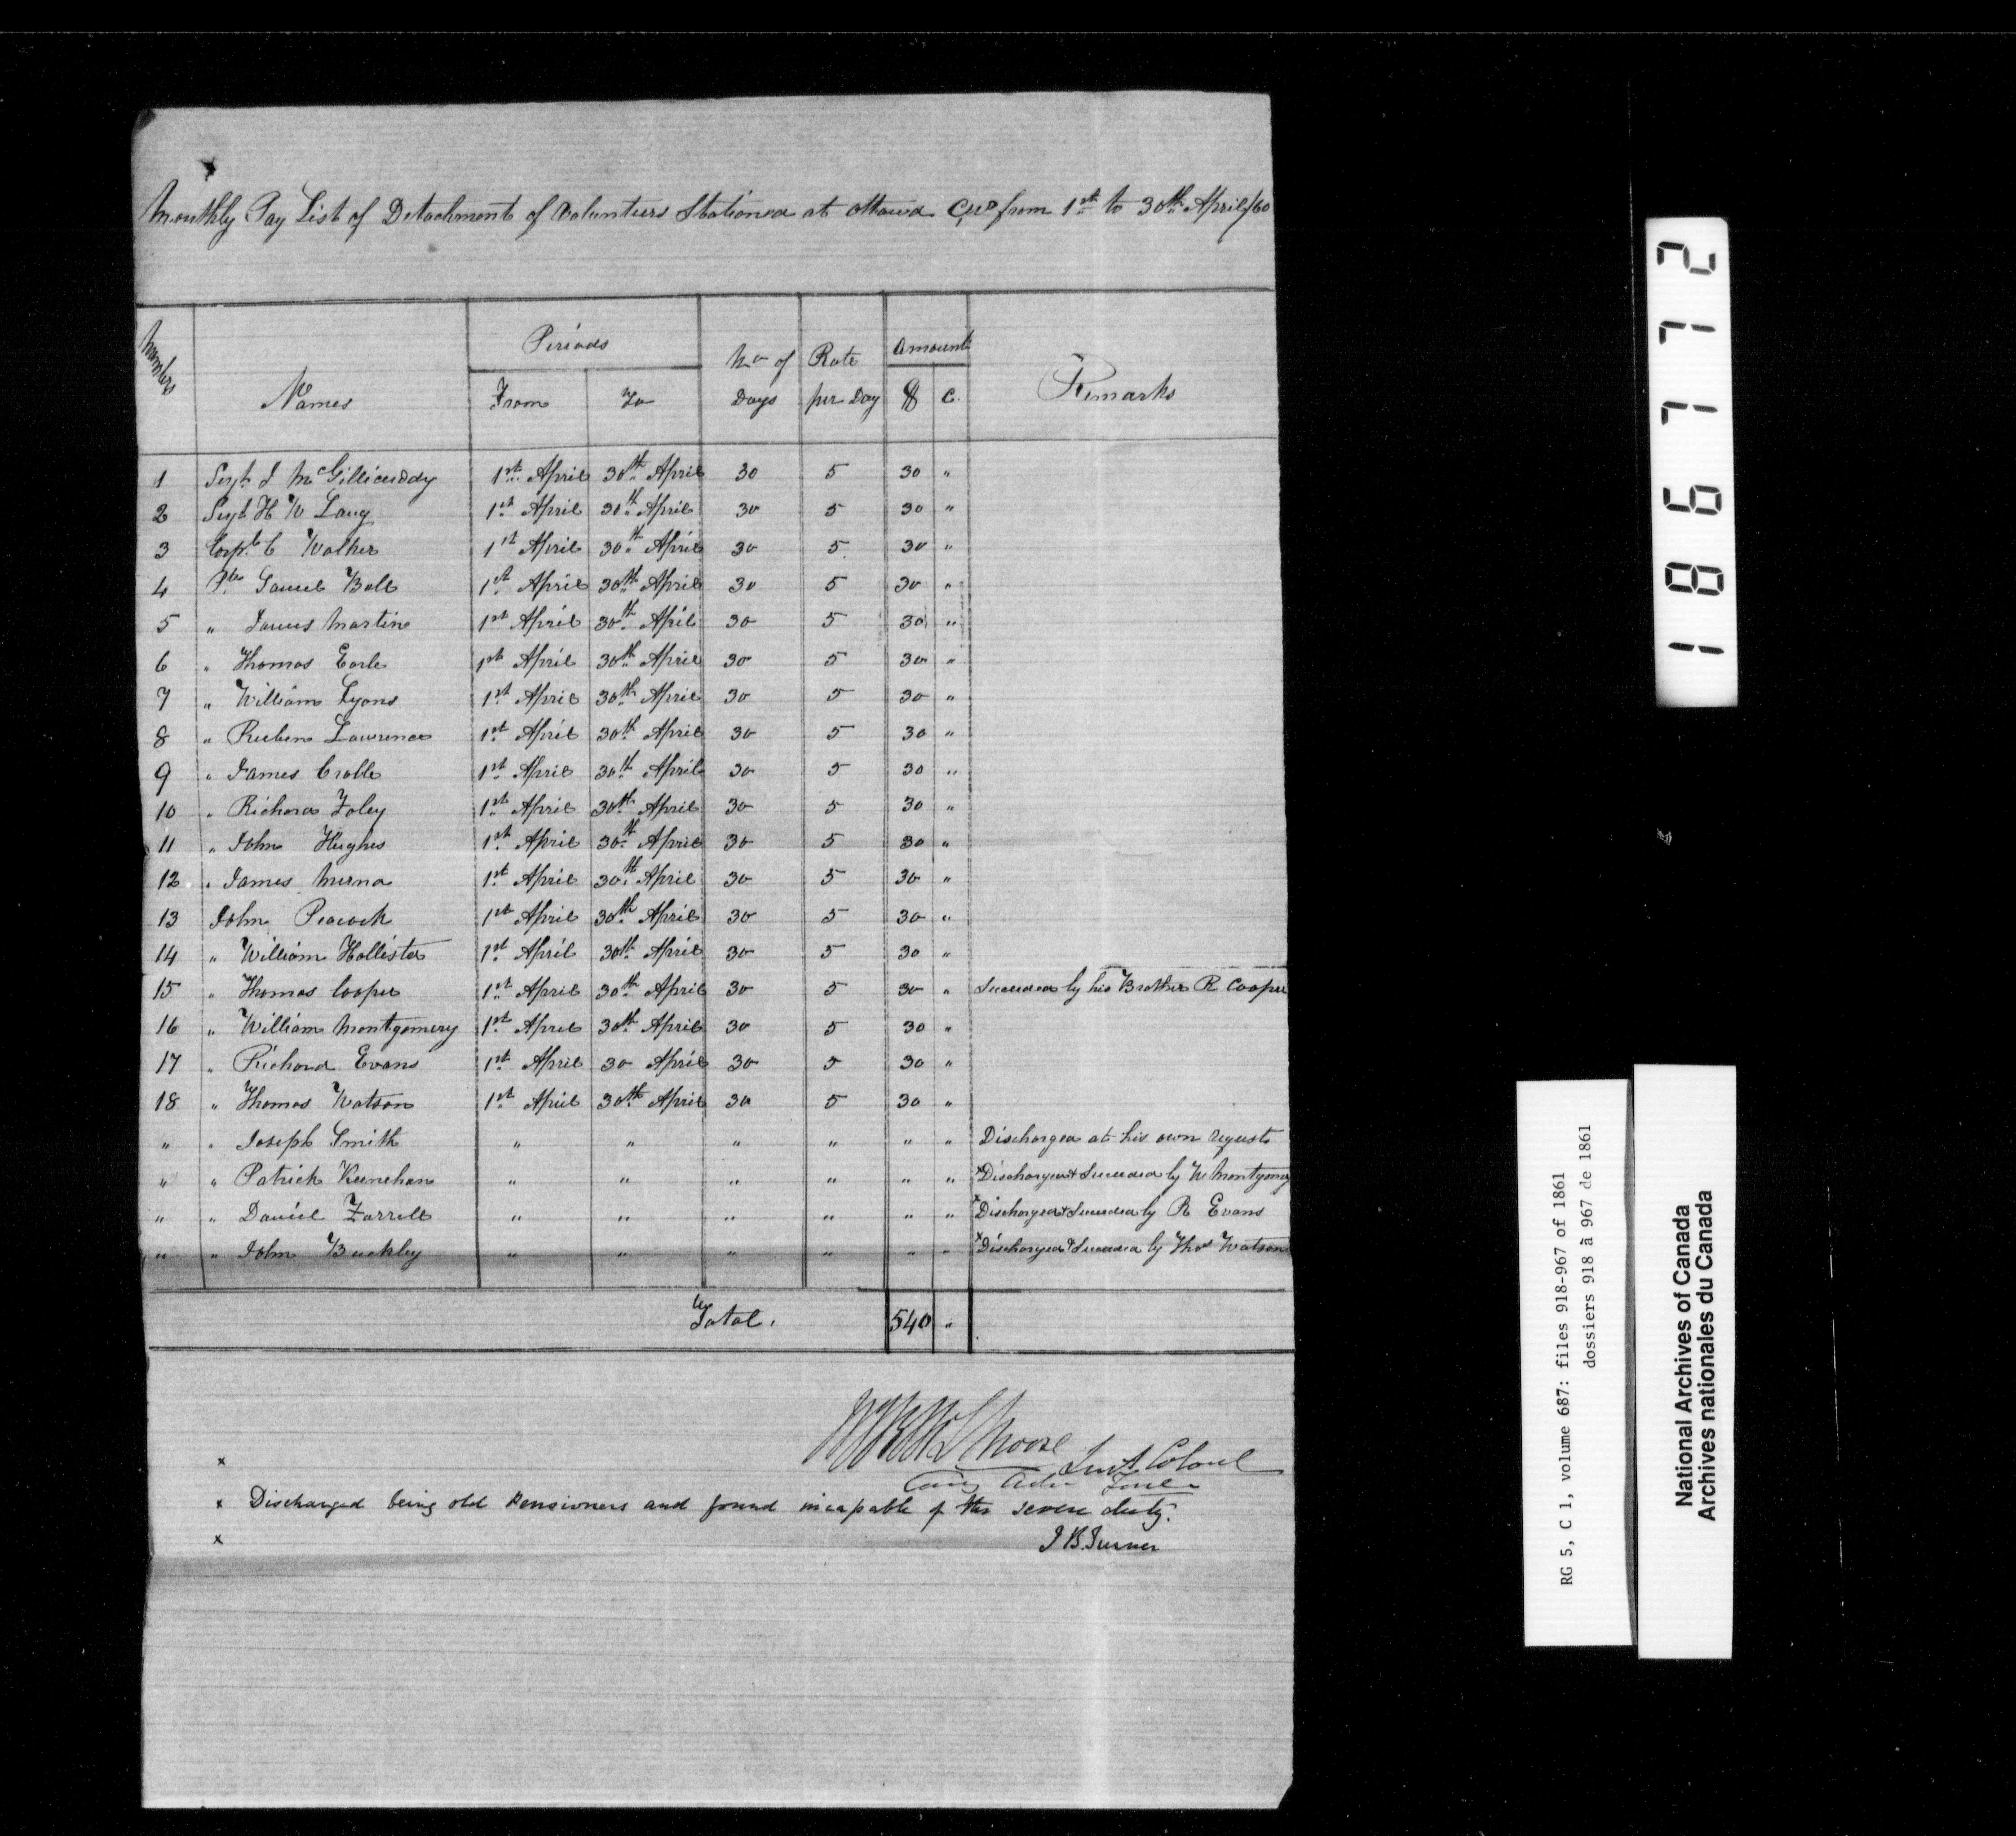 Monthly Pay List of Detachment of Volunteers Stationed at Ottawa C.W. from 1st to 30th April/60
Numbers
Names
Periods
From
To
No of Days
Rate per Day
Amount
$
C.
Remarks
1 Sergt J McGillicuddy 1st April 30th April 30 5 30 "
2 Sergt H W Lang 1st April 30th April 30 5 30 "
3 Corpl C Walker 1st April 30th April 30 5 30 "
4 Pte Samuel Bell 1st April 30th April 30 5 30 "
5 " James Martin 1st April 30th April 30 5 30 "
6 " Thomas Earle 1st April 30th April 30 5 30 "
7 " William Lyons 1st April 30th April 30 5 30 "
8 " Reuben Lawrence 1st April 30th April 30 5 30 "
9 " James Crable 1st April 30th April 30 5 30 "
10 " Richard Foley 1st April 30th April 30 5 30 "
11 " John Hughes 1st April 30th April 30 5 30 "
12 " James 1st April 30th April 30 5 30 "
13 John Peacock 1st April 30th April 30 5 30 "
14 " William Hollister 1st April 30th April 30 5 30 "
15 " Thomas Cooper 1st April 30th April 30 5 30 " Succeeded by his Brother R Cooper
16 " William Montgomery 1st April 30th April 30 5 30 "
17 " Richard Evans 1st April 30 April 30 5 30 "
18 " Thomas Watson 1st April 30th April 30 5 30 "
" " Joseph Smith " " " " " " Discharged at his own request
" " Patrick Keenehan " " " " " " x Discharged & Succeeded by W Montgomery
" " Daniel Farrell " " " " " " x Discharged & Succeeded by R Evans
" " John Buckley " " " " " " x Discharged & Succeeded by Thos Watson
Total. 540 "
Moore Lieut Colonel
x
x Discharged being old Pensioners and found incapable of the severe duty.
x
J B. Turner
186772
RG 5, C 1, volume 687: files 918-967 of 1861
dossiers 918 à 967 de 1861
National Archives of Canada
Archives nationales du Canada